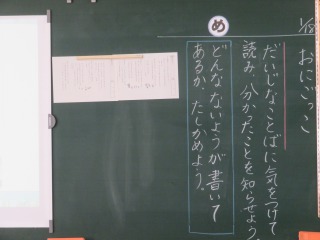 1/18
おにごっこ
だいじなことばに気をつけて
読み、分かったことを知らせよう
め
どんなないようが書いて
あるか、たしかめよう。